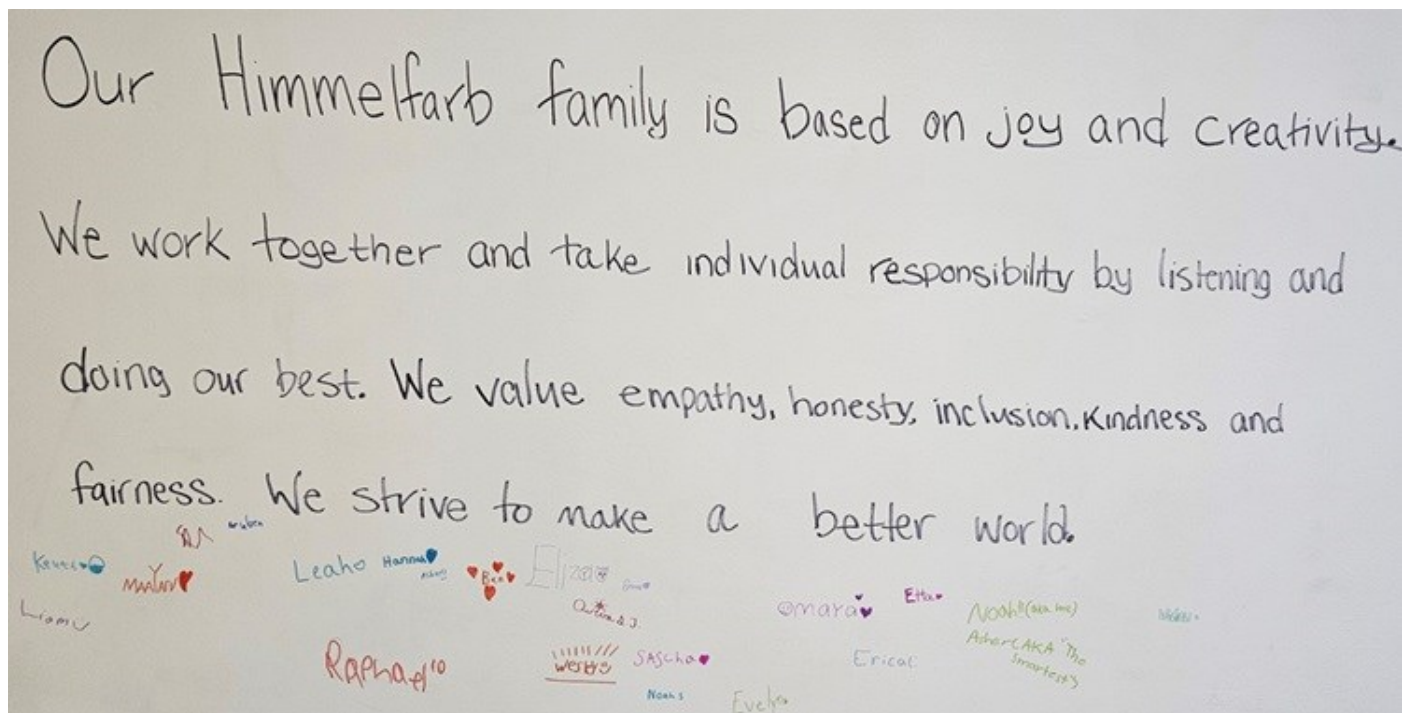 Our Himmelfarb family is based on joy and creativity.
We work together and take individual responsibility by listening and
doing our best. We value empathy, honesty, inclusion, kindness and
fairness. We strive to make a better world.
Leah
Hannah
Ben
Eliza
Omara
Etta
Noah!! (aka me)
Asher (AKA "The
Smartest")
Liam
Raphael
SASCha
Erica
Noah S